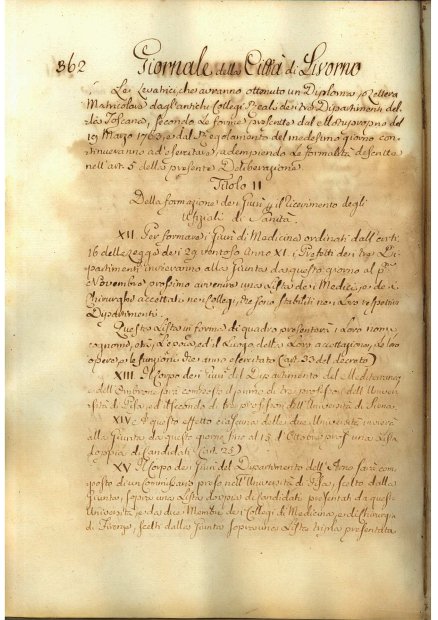 362 Giornale della Città di Livorno
Le Levatrici, che avranno ottenuto un Diploma, o Lettera
Matricola dagli antichi Collegi Reali dei tre Dipartimenti del-
la Toscana, secondo le forme prescritte dal Motuproprio del
10 Marzo 176 e dal Regolamento del medesimo giorno con-
tinueranno ad esercitare, adempiendo le formalità descritte
nell'art. 5 della presente Deliberazione.
Titolo II
Della formazione dei Giurì il Ricevimento degli
Ufiziali di Sanità.
XII. Per formare i Giurì di Medicina ordinati dall'art.
16 della Legge dei 29 Ventoso Anno XI. i Prefetti dei tre Di-
partimenti invieranno alla Giunta da questo giorno al p.
Novembre prossimo avvenire una Lista dei Medici, e dei
Chirurghi accettati nei Collegi, che sono stabiliti nei loro respettivi
Dipartimenti.
Questa Lista in forma di quadro presenterà i loro nomi,
cognomi, età, l'epoca, ed il Luogo della loro accettazione, le loro
opere, e le funzioni che anno esercitate (art. 23 del decreto)
XIII Il Corpo dei Giurì del Dipartimento del Mediterraneo
e dell'Ombrone sarà composto il primo di tre professori dell'Univer-
sità di Pisa, ed il secondo di tre professori dell'Università di Siena.
XIV A questo effetto ciascuna delle due Università invierà
alla Giunta da questo giorno fino al 15 d'Ottobre pros una Lista
doppia di Candidati (art. 25)
XV Il Corpo dei Giurì del Dipartimento dell'Arno sarà com-
posto di un Commissario preso nell'Università di Pisa, scelto dalla
Giunta, sopra una Lista doppia di Candidati presentati da questa
Università, e da due Membri dei Collegi di Medicina, e di Chirurgia
di Firenze, scelti dalla Giunta sopra una Lista tripla presentata